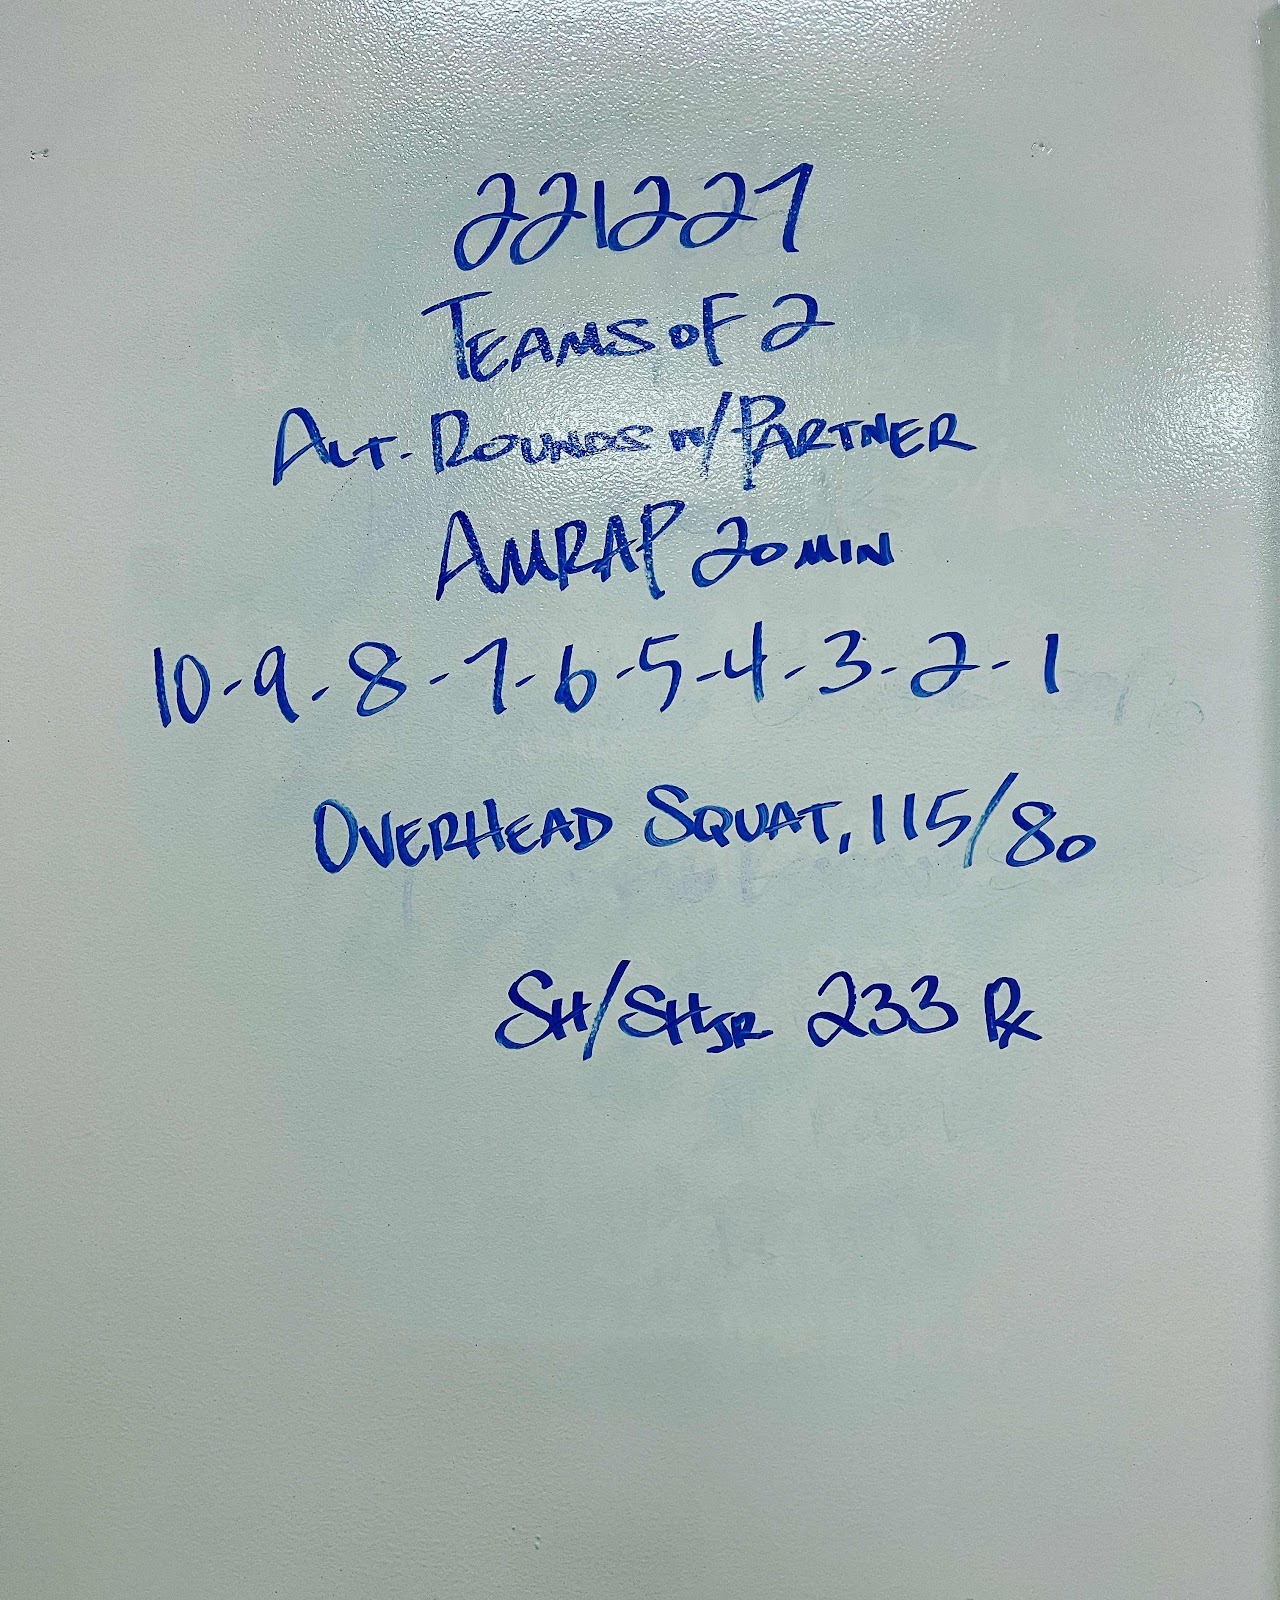 221227
TEAMS OF 2
ALT. ROUNDS W/PARTNER
AMRAP 20 MIN
10-9-8-7-6-5-4-3-2-1
OVERHEAD SQUAT, 115/80
SH/SHJR 233 Rx